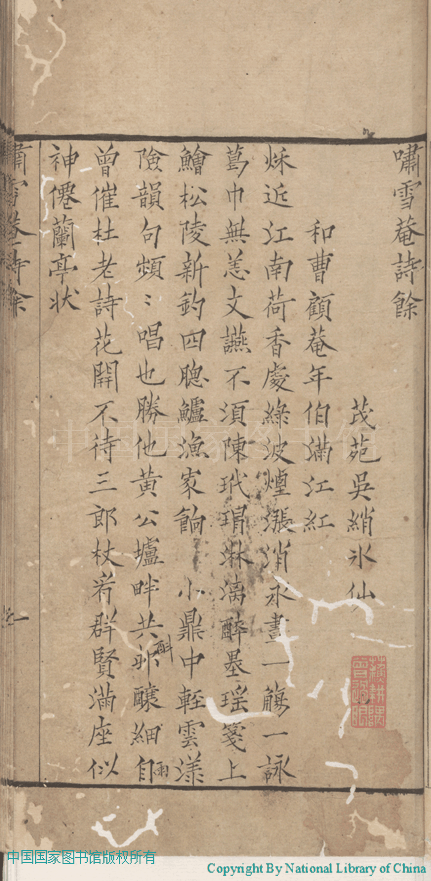 嘯雪菴詩餘
茂苑吳綃冰仙
和曹顧菴年伯滿江紅
秌近江南荷香處綠波煙漲消永晝一觴一詠
葛巾無恙文讌不須陳玳瑁淋漓醉墨瑤箋上
鱠松陵新釣四腮鱸漁家餉 小鼎中輕雲漾
險韻句頻〻唱也勝他黃公壚畔共斟醲細雨
曾催杜老詩花開不待三郎杖若群賢滿座似
神僊蘭亭狀
嘯雪菴詩餘
中国国家图书馆版权所有
Copyright By National Library of China